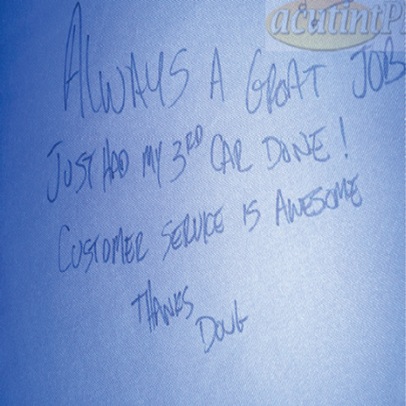 acutintP
ALWAYS A GREAT JOB
JUST HAD MY 3RD CAR DONE!
CUSTOMER SERVICE IS AWESOME
THANKS
DOUG